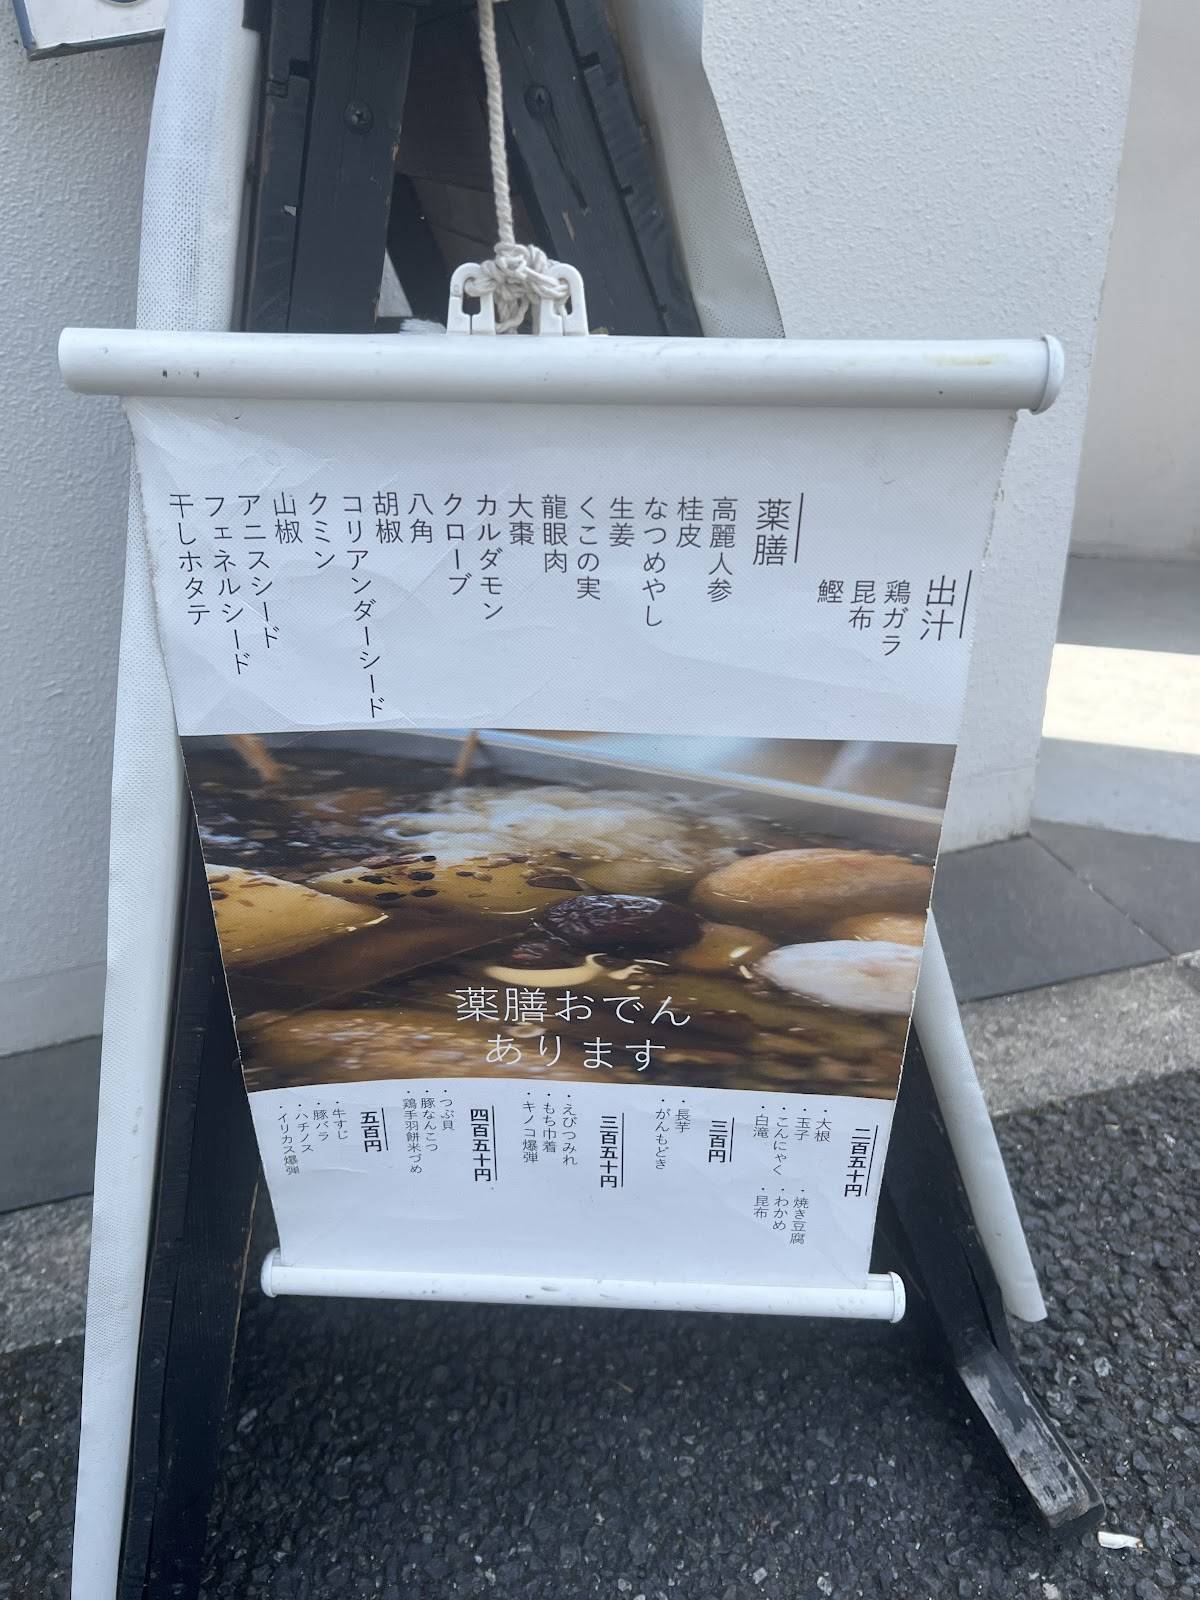 出汁
鶏ガラ
昆布
鰹
薬膳
高麗人参
桂皮
なつめやし
生姜
くこの実
龍眼肉
大棗
カルダモン
クローブ
八角
胡椒
コリアンダーシード
クミン
山椒
アニスシード
フェネルシード
干しホタテ
薬膳おでん
あります
二百五十円
・大根
・玉子
・こんにゃく
・白滝
・焼き豆腐
・わかめ
・昆布
三百円
・長芋
・がんもどき
三百五十円
・えびつみれ
・もち巾着
・キノコ爆弾
四百五十円
・つぶ貝
・豚なんこつ
・鶏手羽餅米づめ
五百円
・牛すじ
・豚バラ
・ハチノス
・イリカス爆弾